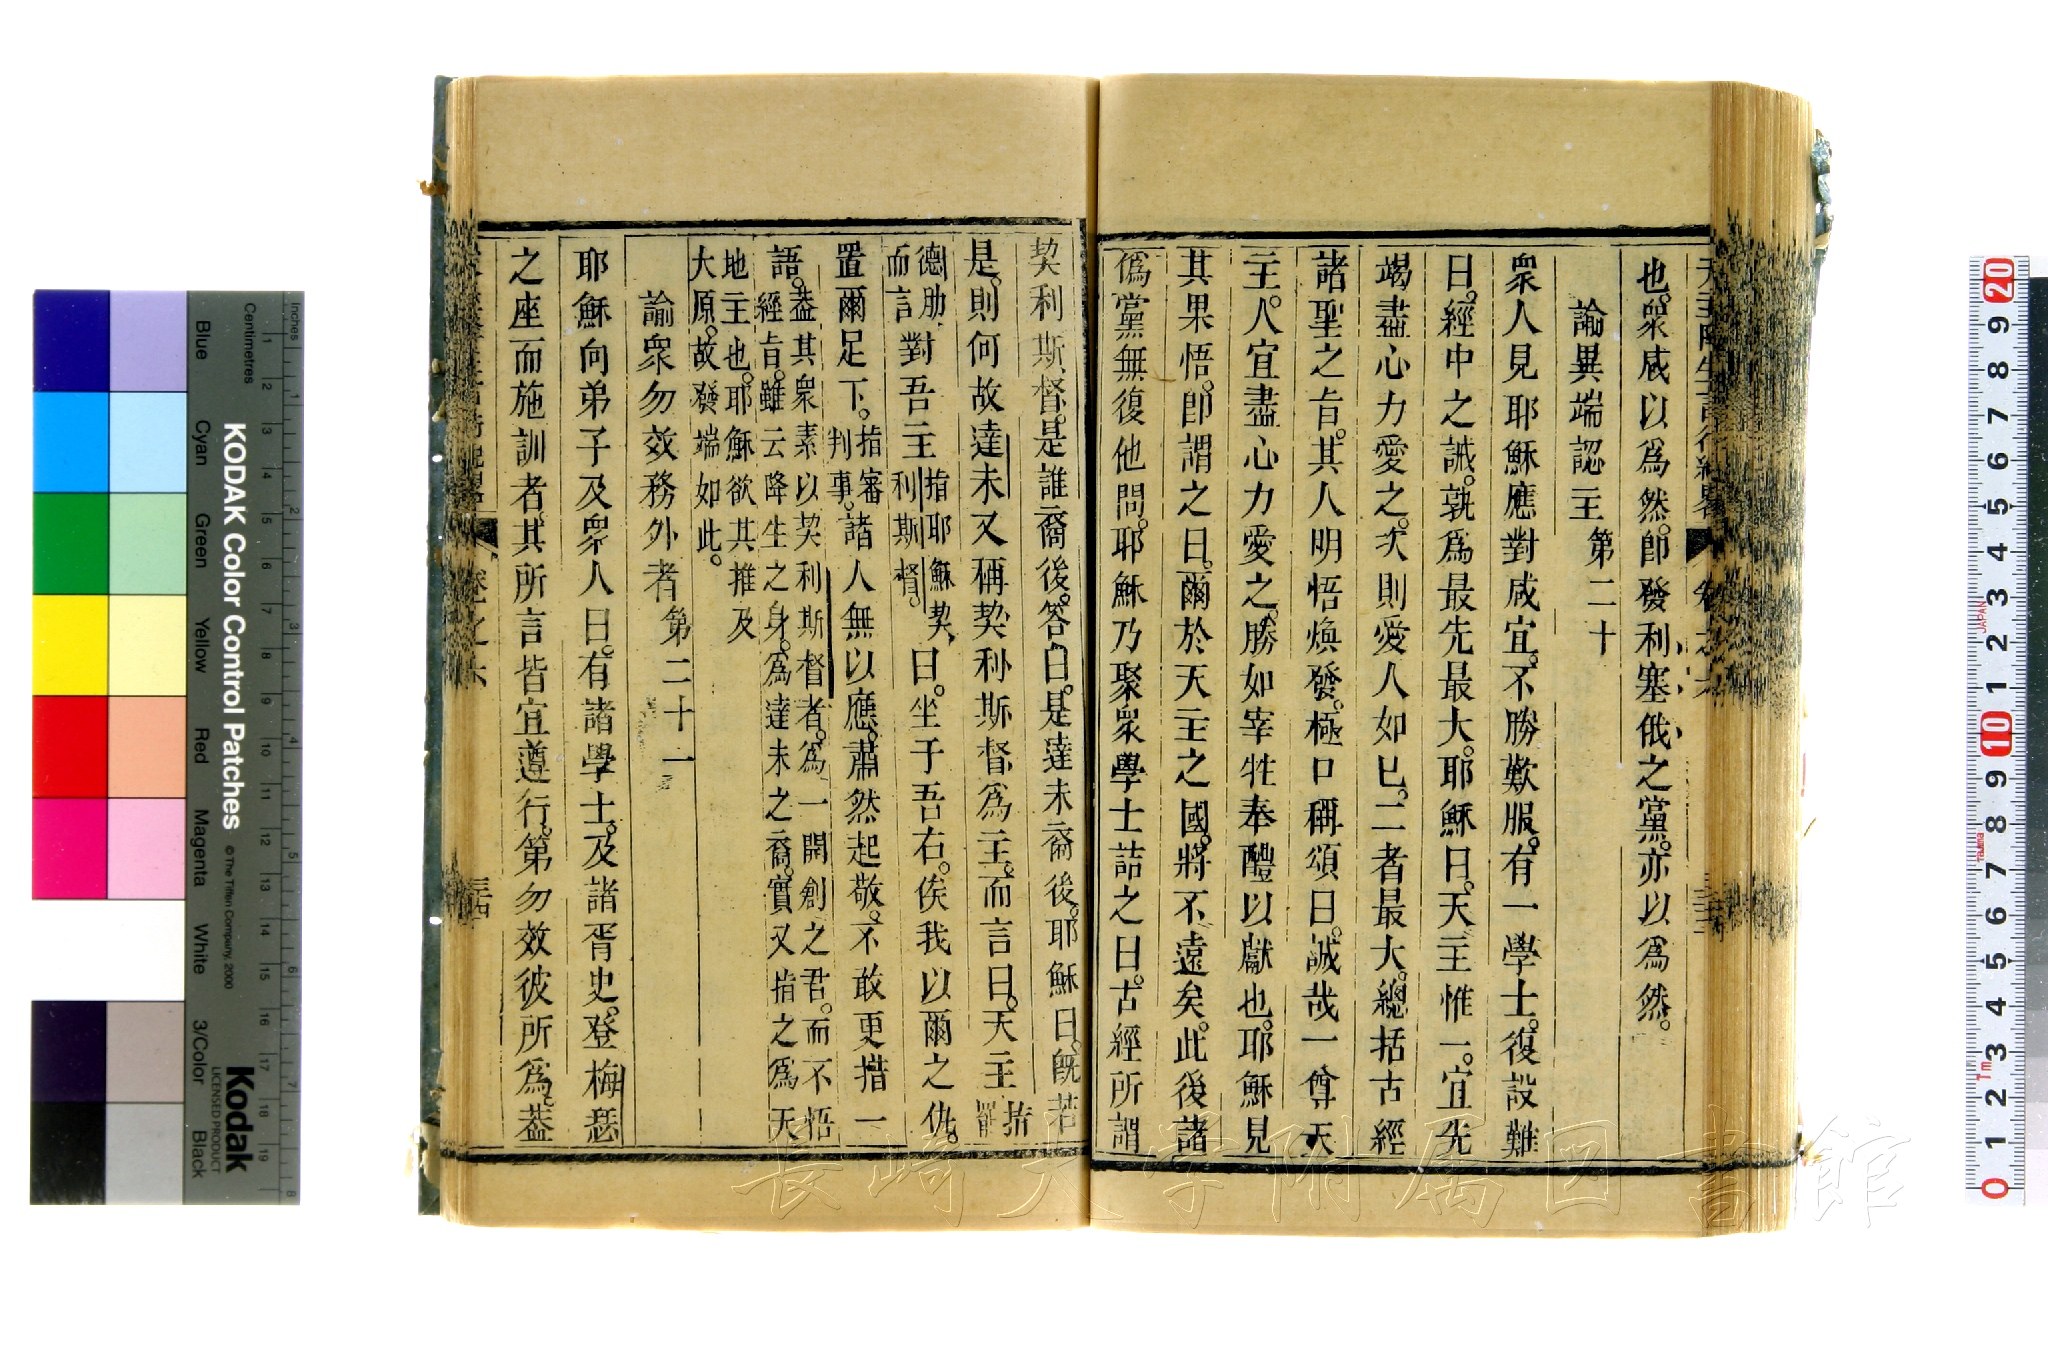 也。衆咸以爲然。卽發利塞俄之黨。亦以爲然。
論異端認主 第二十
衆人見耶穌應對咸宜。不勝歎服。有一學士。復設難
曰。經中之誡。孰爲最先最大。耶穌曰。天主惟一。宜先
竭盡心力愛之。次則愛人如己。二者最大。總括古經
諸聖之旨。其人明悟煥發。極口稱頌曰。誠哉一尊天
主。人宜盡心力愛之。勝如宰牲奉醴以獻也。耶穌見
其果悟。卽謂之曰。爾於天主之國。將不遠矣。此後諸
僞黨無復他問。耶穌乃聚衆學士詰之曰。古經所謂
契利斯督。是誰裔後。答曰。是達未裔後。耶穌曰。旣若
是。則何故達未又稱契利斯督爲主。而言曰。天主 指罷
德肋而言 對吾主 指耶穌契利斯督。 曰。坐于吾右。俟我以爾之仇。
置爾足下。 指審判事。 諸人無以應。肅然起敬。不敢更措一
語。 葢其衆素以契利斯督者。爲一開創之君。而不悟
經旨。雖云降生之身。爲達未之裔。實又指之爲天
地主也。耶穌欲其推及
大原。故發端如此。
論衆勿效務外者 第二十一
耶穌向弟子及衆人曰。有諸學士。及諸胥史。登梅瑟
之座而施訓者。其所言皆宜遵行。第勿效彼所爲。葢
三十四
KODAK Color Control Patches
© The Tiffen Company, 2000
Kodak
LICENSED PRODUCT
Inches
Centimetres
Blue
Cyan
Green
Yellow
Red
Magenta
White
3/Color
Black
長崎大学附属図書館
JAPAN